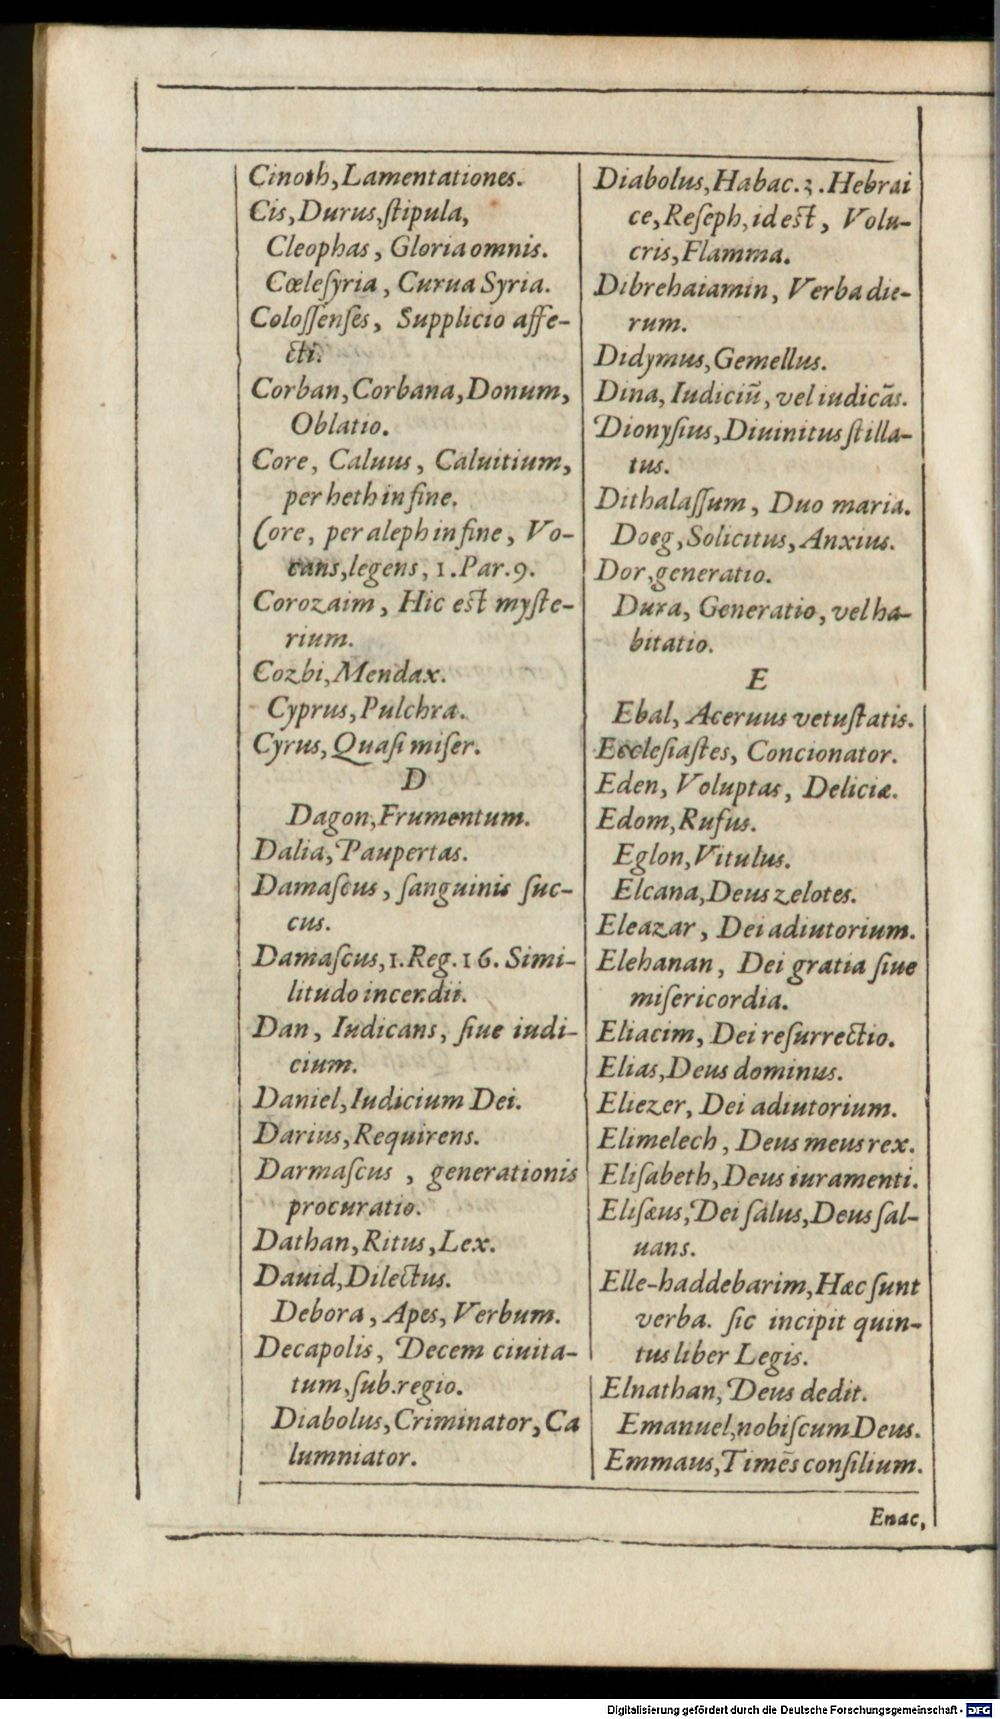 Cinoth, Lamentationes.
Cis, Durus, ſtipula,
Cleophas, Gloria omnis.
Cœleſyria, Curua Syria.
Coloſſenſes, Supplicio affe-
cti.
Corban, Corbana, Donum,
Oblatio.
Core, Caluus, Caluitium,
per heth in fine.
Core, per aleph in fine, Vo-
cans, legens, 1. Par. 9.
Corozaim, Hic est myſte-
rium.
Cozbi, Mendax.
Cyprus, Pulchra.
Cyrus, Quaſi miſer.
D
Dagon, Frumentum.
Dalia, Paupertas.
Damaſcus, ſanguinis ſuc-
cus.
Damaſcus, 1. Reg. 16. Simi-
litudo incendii.
Dan, Iudicans, ſiue iudi-
cium.
Daniel, Iudicium Dei.
Darius, Requirens.
Darmaſcus, generationis
procuratio.
Dathan, Ritus, Lex.
Dauid, Dilectus.
Debora, Apes, Verbum.
Decapolis, Decem ciuita-
tum, ſub. regio.
Diabolus, Criminator, Ca
lumniator.
Diabolus, Habac. 3. Hebrai
ce, Reſeph, id est, Volu-
cris, Flamma.
Dibrehaiamin, Verba die-
rum.
Didymus, Gemellus.
Dina, Iudiciū, vel iudicās.
Dionyſius, Diuinitus ſtilla-
tus.
Dithalaſſum, Duo maria.
Doeg, Solicitus, Anxius.
Dor, generatio.
Dura, Generatio, vel ha-
bitatio.
E
Ebal, Aceruus vetuſtatis.
Eccleſiaſtes, Concionator.
Eden, Voluptas, Deliciæ.
Edom, Rufus.
Eglon, Vitulus.
Elcana, Deus zelotes.
Eleazar, Dei adiutorium.
Elehanan, Dei gratia ſiue
miſericordia.
Eliacim, Dei reſurrectio.
Elias, Deus dominus.
Eliezer, Dei adiutorium.
Elimelech, Deus meus rex.
Eliſabeth, Deus iuramenti.
Eliſæus, Dei ſalus, Deus ſal-
uans.
Elle-haddebarim, Hæc ſunt
verba. ſic incipit quin-
tus liber Legis.
Elnathan, Deus dedit.
Emanuel, nobiſcum Deus.
Emmaus, Timēs conſilium.
Enac,
Digitalisierung gefördert durch die Deutsche Forschungsgemeinschaft - DFG